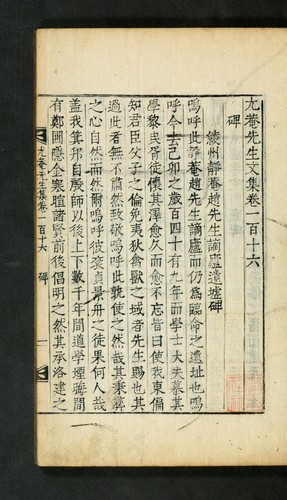 尤菴先生文集卷一百十六
碑
綾州靜菴趙先生謫廬遺墟碑
嗚呼此靜菴趙先生謫廬而仍爲臨命之遺址也嗚
呼今去己卯之歲百四十有九年而學士大夫慕其
學黎民胥徒懷其澤愈久而愈不忘皆曰使我東偏
知君臣父子之倫免夷狄禽獸之域者先生賜也其
過此者無不肅然致敬嗚呼此孰使之然哉其秉彝
之心自然而然爾嗚呼彼袞貞景舟之徒果何人哉
蓋我箕邦自殷師以後上下數千年間道學堙晦間
有鄭圃隱金寒暄諸賢前後倡明之然其承洛建之
尤菴先生集卷一百十六
碑
一